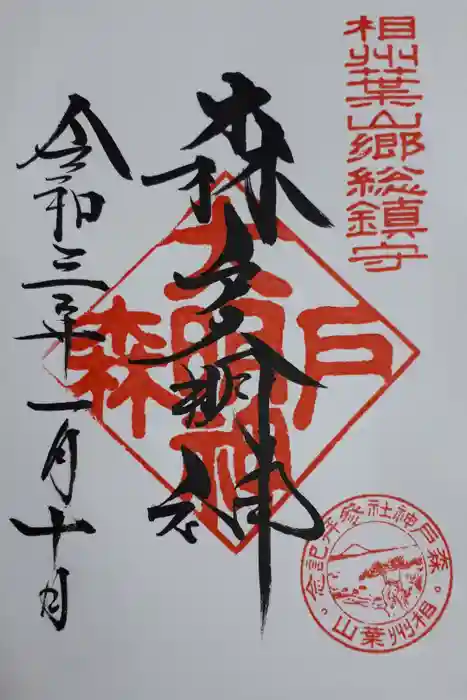 相州葉山郷総鎮守
森戸大明神
令和三年一月十日
森
戸
大明神
森戸神社参拝記念。
相州葉山。